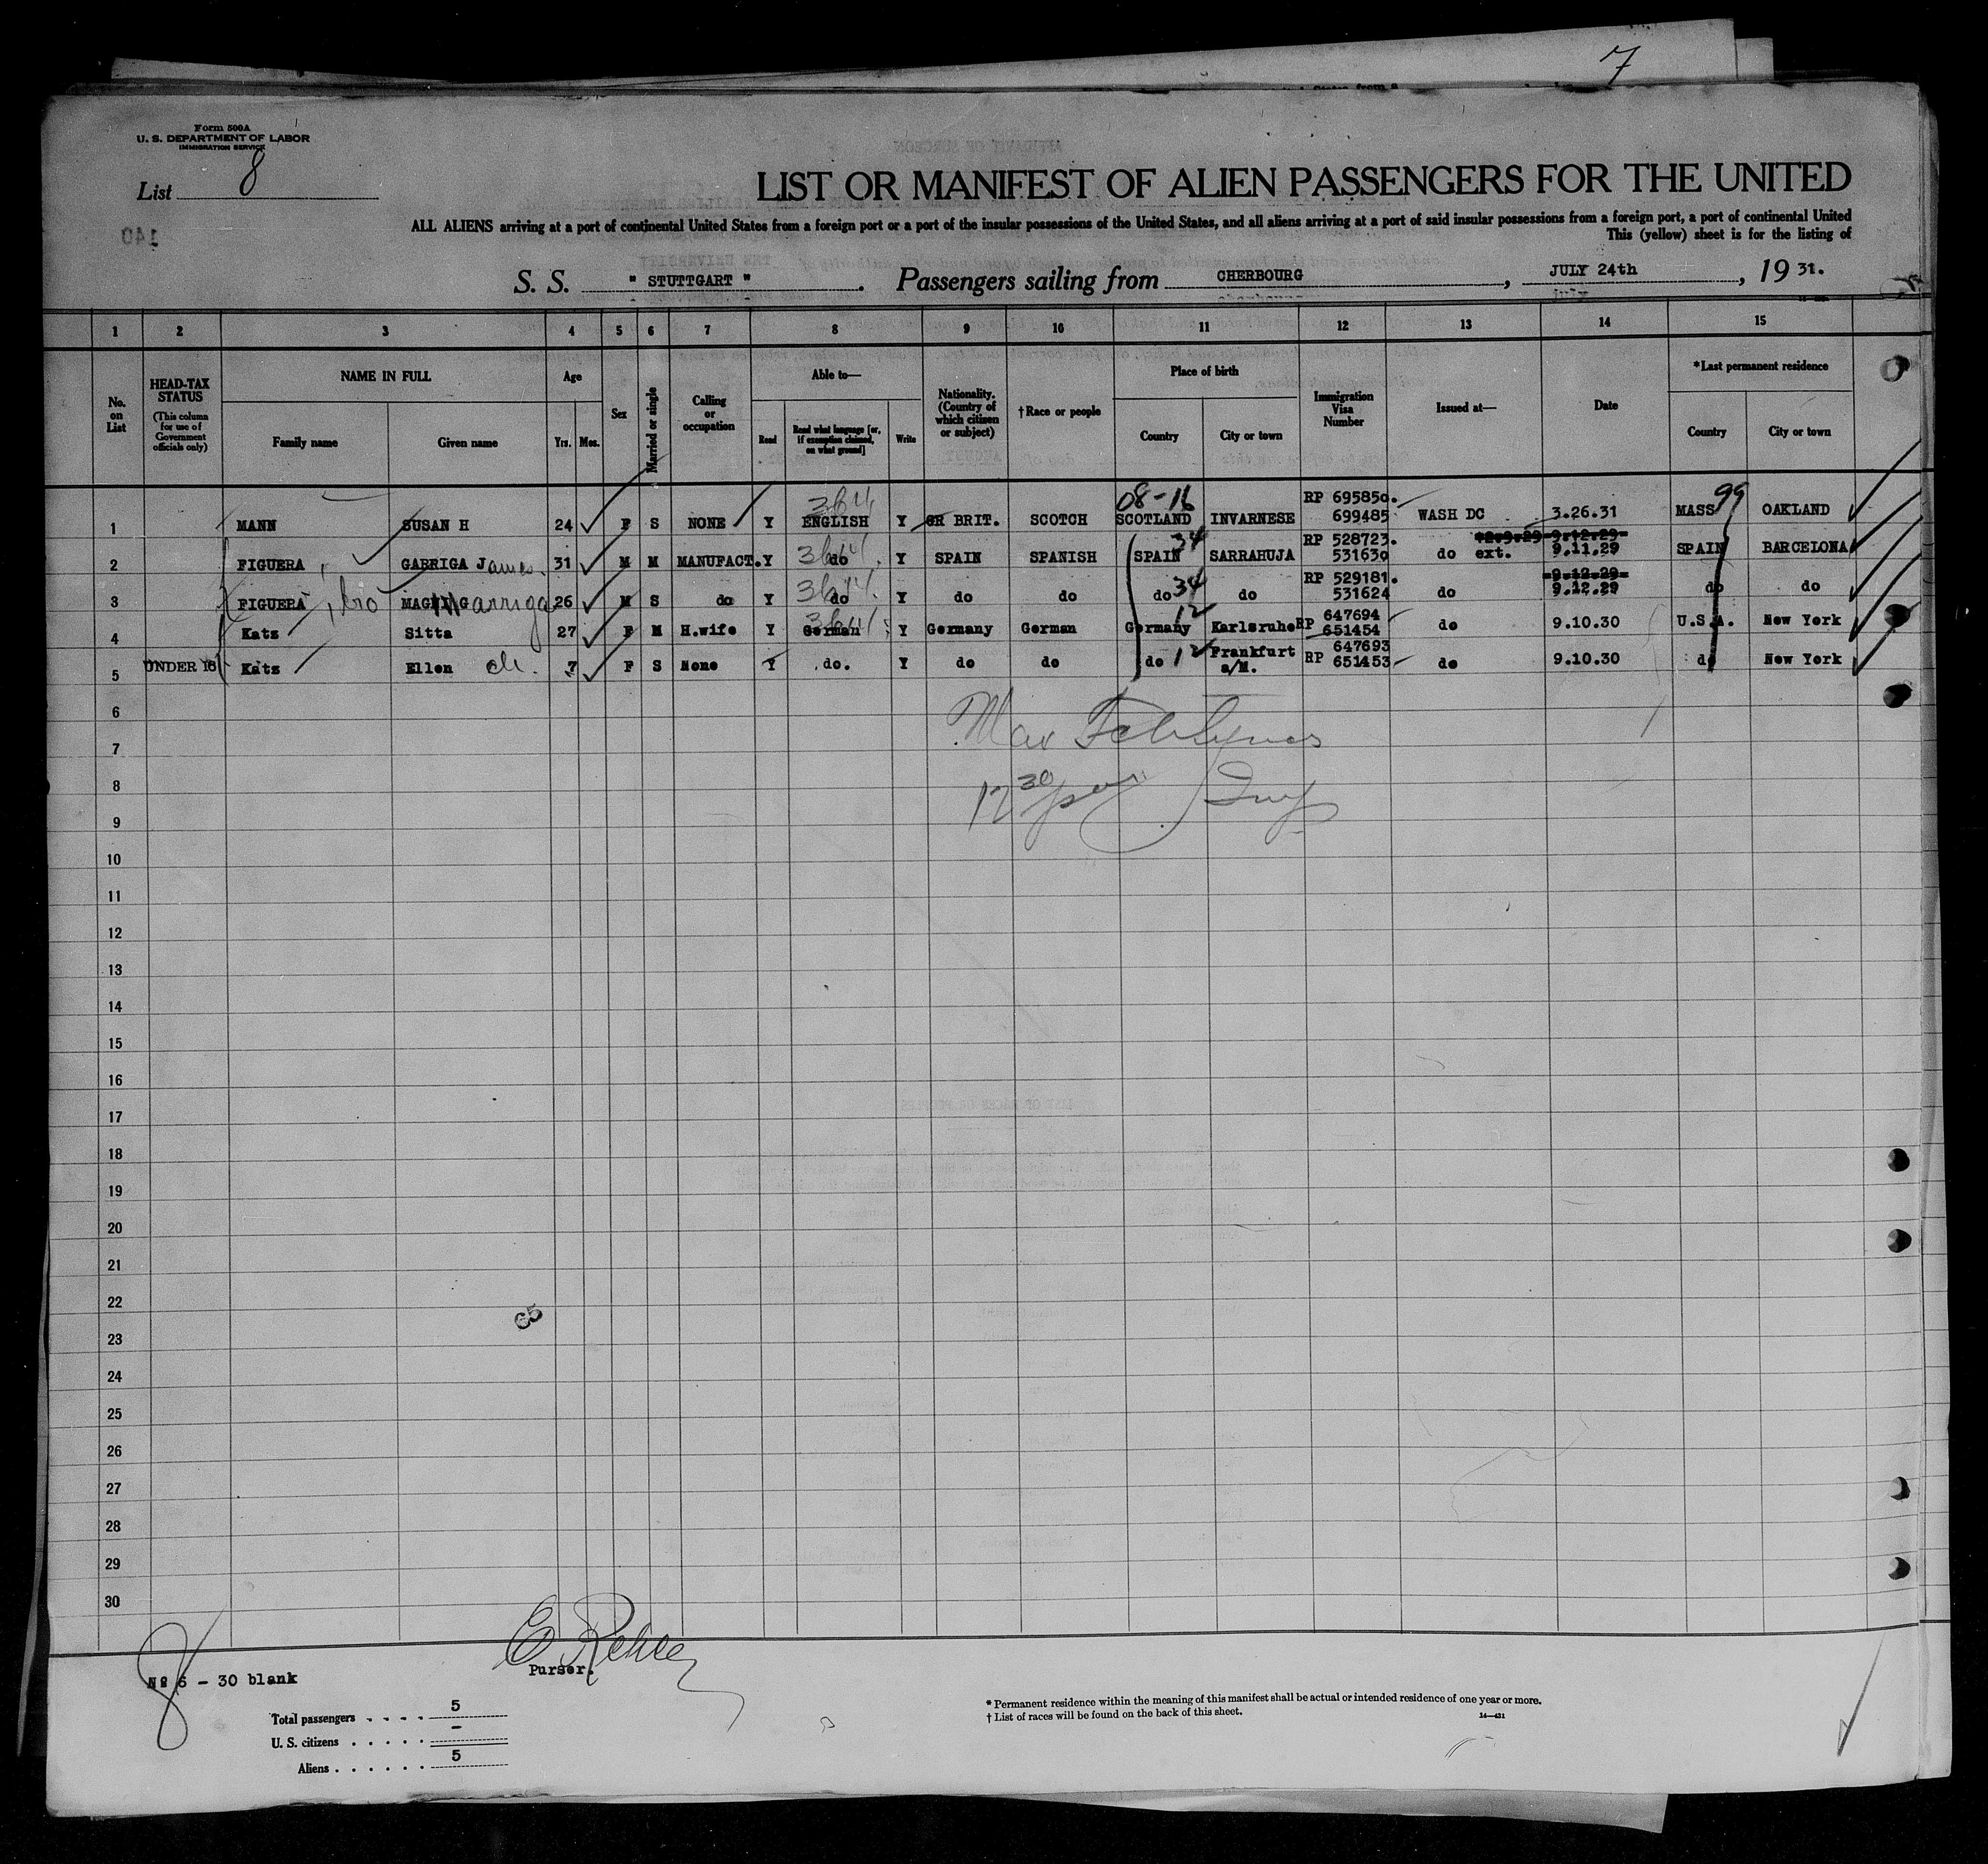 7
Form 500A
U. S. DEPARTMENT OF LABOR
IMMIGRATION SERVICE
List 8
LIST OR MANIFEST OF ALIEN PASSENGERS FOR THE UNITED
ALL ALIENS arriving at a port of continental United States from a foreign port or a port of the insular possessions of the United States, and all aliens arriving at a port of said insular possessions from a foreign port, a port of continental United
This (yellow) sheet is for the listing of
140
S. S. " STUTTGART " . Passengers sailing from CHERBOURG , JULY 24th , 19 31.
1 2 3 4 5 6 7 8 9 10 11 12 13 14 15
No. on List
HEAD-TAX STATUS (This column for use of Government officials only)
NAME IN FULL Family name Given name
Age Yrs. Mos.
Sex
Married or single
Calling or occupation
Able to— Read Read what language [or, if exemption claimed, on what ground] Write
Nationality. (Country of which citizen or subject)
† Race or people
Place of birth Country City or town
Immigration Visa Number
Issued at—
Date
*Last permanent residence Country City or town
1 MANN SUSAN H 24 F S NONE Y ENGLISH Y GR BRIT. SCOTCH 08-16 SCOTLAND INVARNESE RP 695850. 699485 WASH DC 3.26.31 MASS 99 OAKLAND
2 FIGUERA, GARRIGA James. 31 M M MANUFACT. Y do Y SPAIN SPANISH SPAIN 34 SARRAHUJA RP 528723. 531630 do ext. 9.11.29 SPAIN BARCELONA
3 FIGUERA, bro MAGIN Garriga 26 M S do Y do Y do do do 34 do RP 529181. 531624 do 9.12.29 9.12.29 do do
4 Katz Sitta 27 F M H.wife Y German Y Germany German Germany 12 Karlsruhe RP 647694 651454 do 9.10.30 U.S.A. New York
5 UNDER 16 Katz Ellen ch. 7 F S None Y do. Y do do do 12 Frankfurt a/M. RP 647693 651453 do 9.10.30 do New York
6
7
Max
8
12 30 pm
9
10
11
12
13
14
15
16
17
18
19
20
21
22
65
23
24
25
26
27
28
29
30
8
Purser.
No 6 - 30 blank
Total passengers . . . . 5
U. S. citizens . . . . . –
Aliens . . . . . . 5
* Permanent residence within the meaning of this manifest shall be actual or intended residence of one year or more.
† List of races will be found on the back of this sheet.
14—431